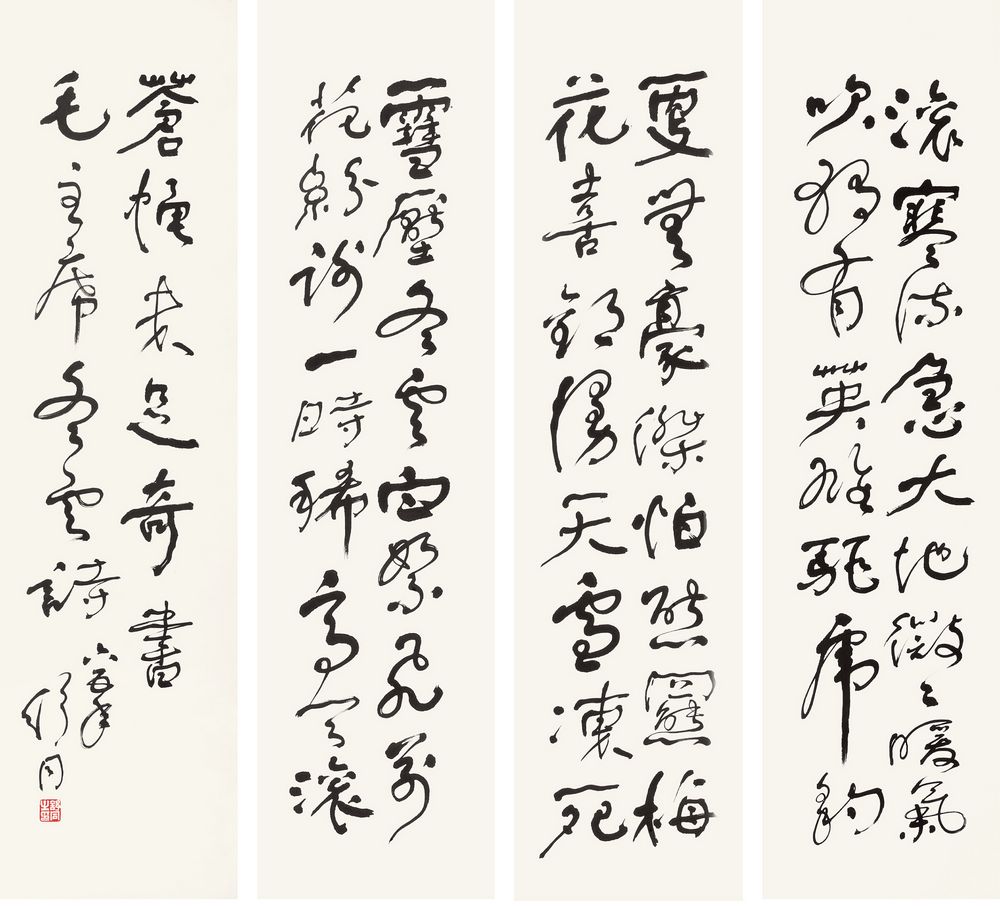 滾寒流急大地微々暖氣
吹獨有英雄駆虎豹
更無豪傑怕熊羆梅
花喜歡漫天雪凍死
雪壓冬雲白絮飛萬
花紛謝一時稀高天滾
蒼蠅未足奇書
毛主席冬雲詩
舒同